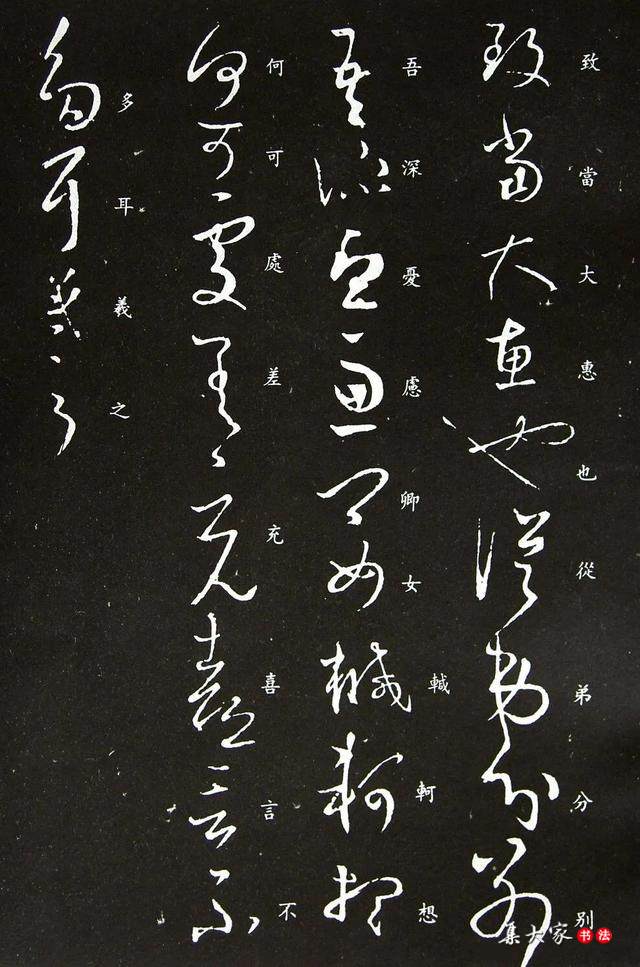 致當大惠也從弟分別
吾深憂慮卿女轗軻想
何可處差〻充喜言不
多耳羲之
集大家书法